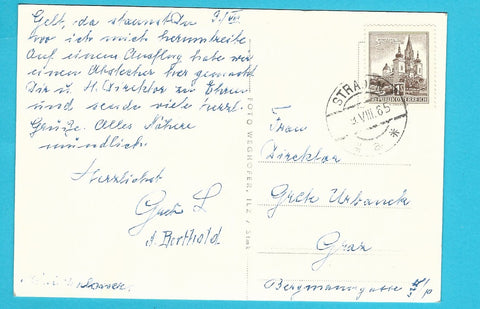 Gelt, da staunst Du
wo ich mich herumtreibe
Auf einem Ausflug habe wir
einen Abstecher hier gemacht
Dir u. H. Direktor zu Ehren
und sende viele herzl.
Grüße. Alles Nähere
mündlich.
Herzlichst
Grete L
Berthold
FOTO WEGHOFER, ILZ / Stmk
REPUBLIK ÖSTERREICH
STRADEN
VIII. 65
Frau
Direktor
Grete Urbanek
Graz
Bergmanngasse